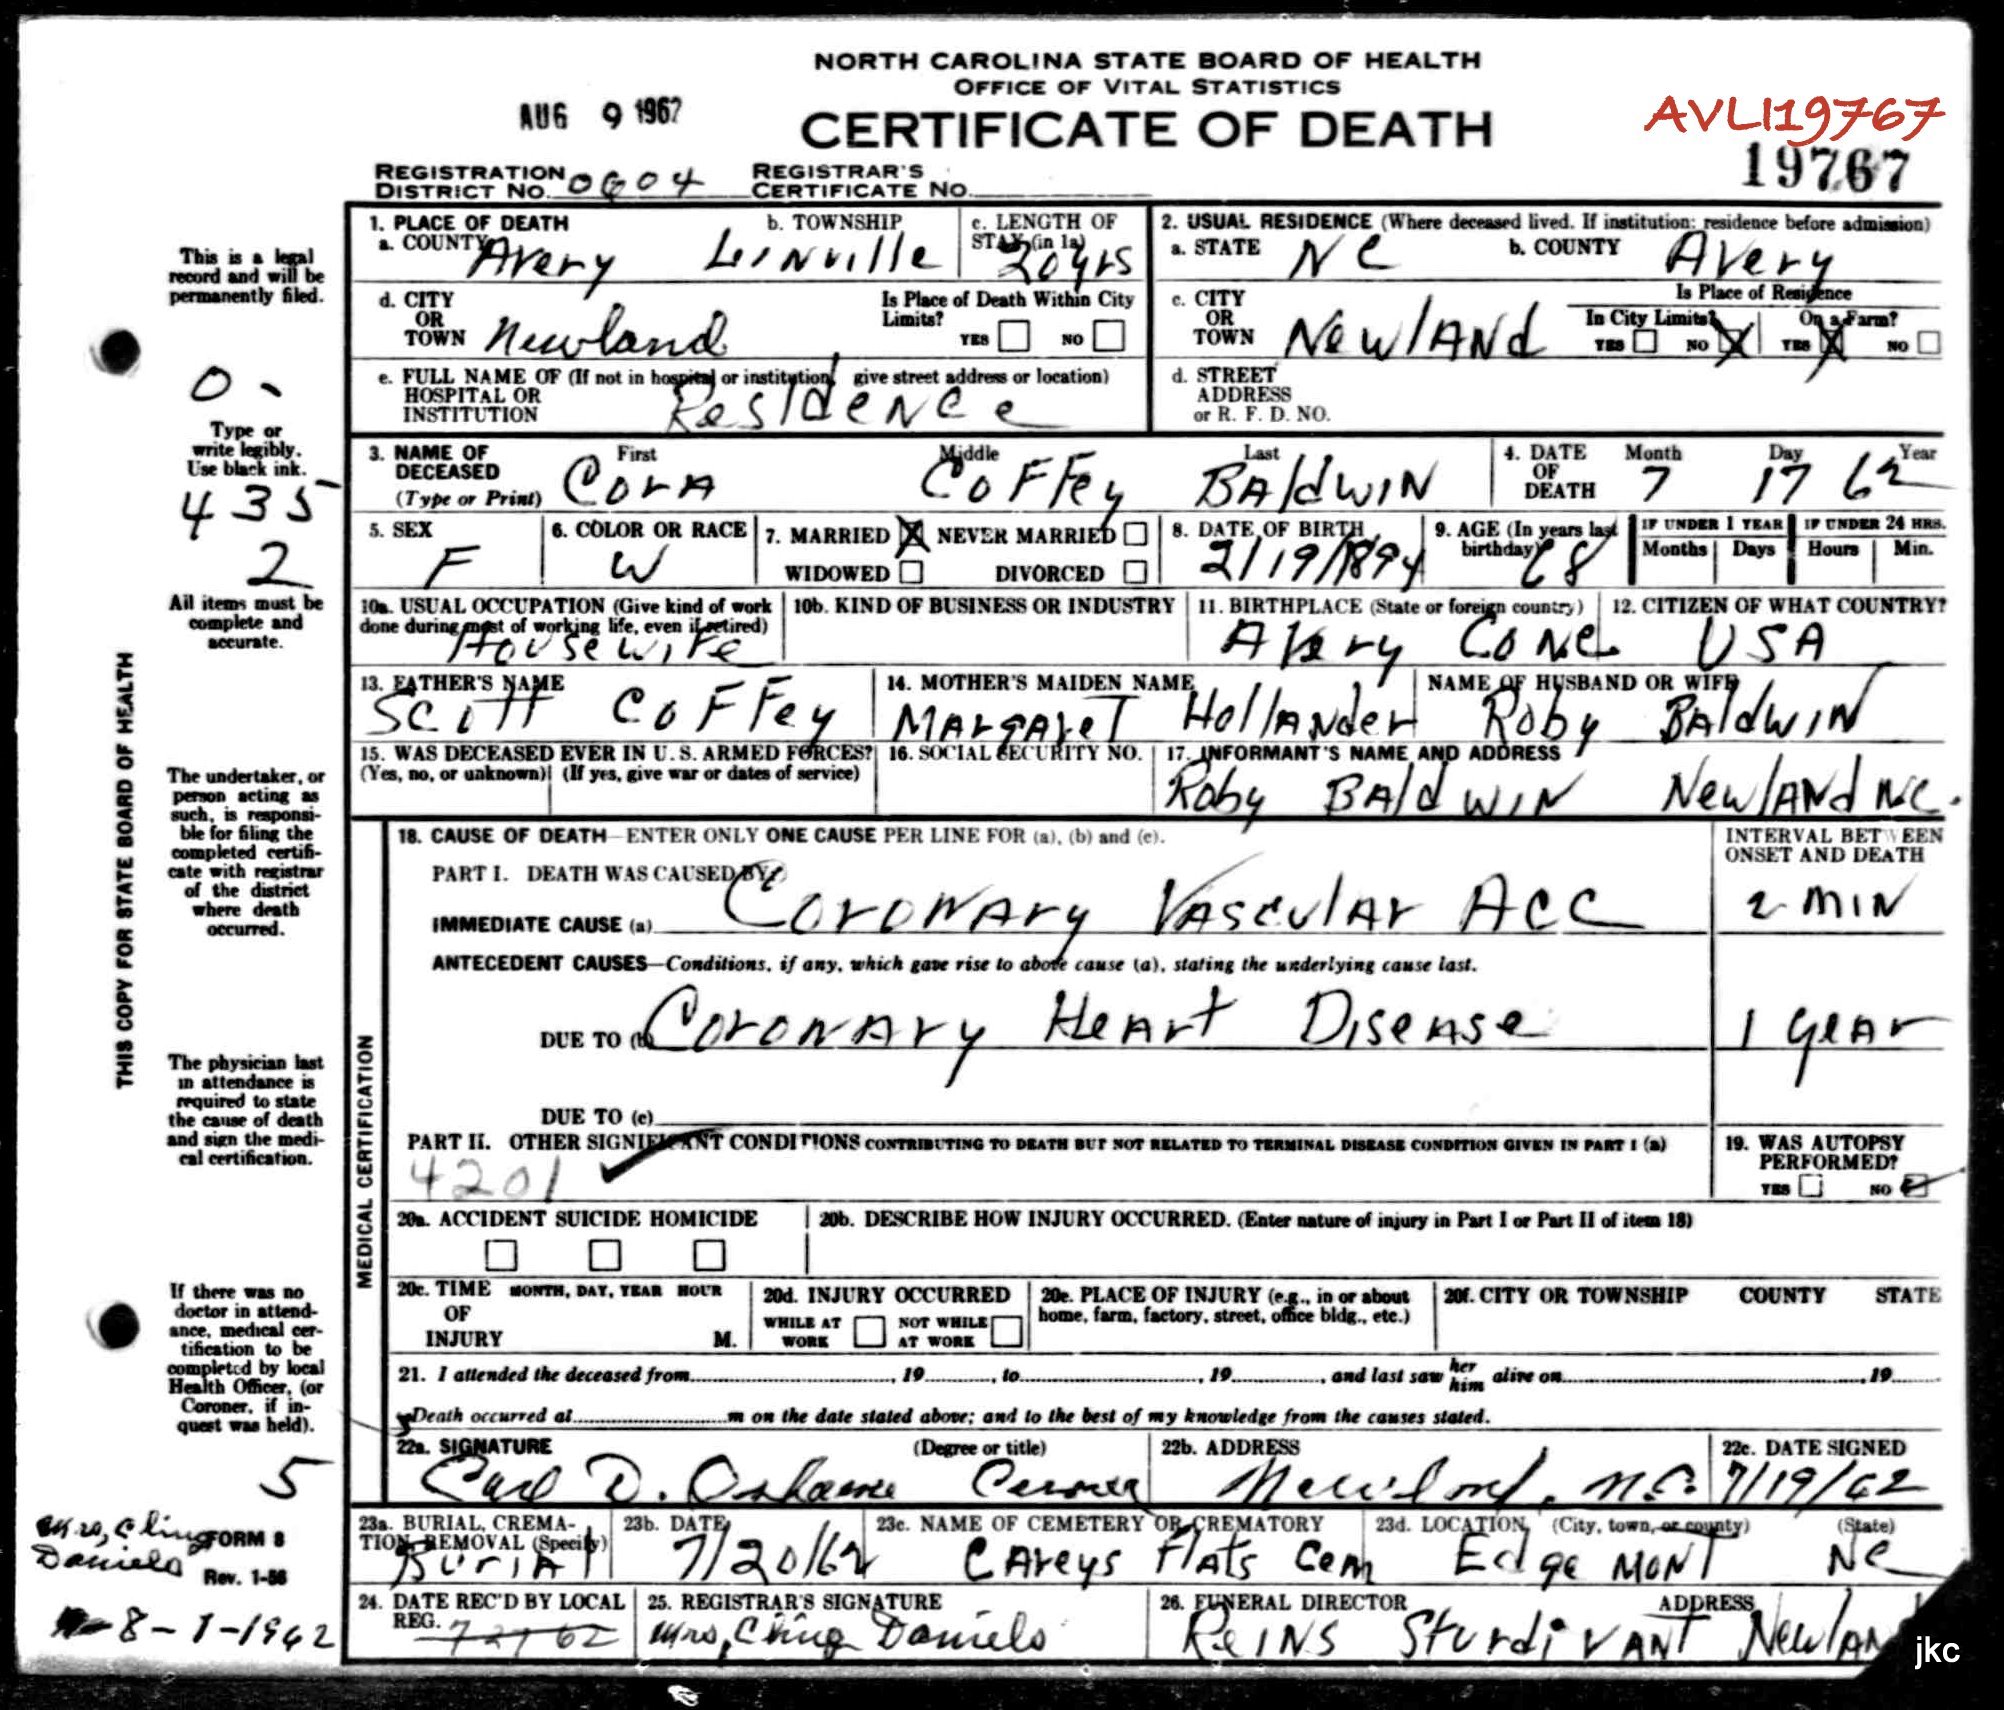 NORTH CAROLINA STATE BOARD OF HEALTH
OFFICE OF VITAL STATISTICS
AUG 9 1962
CERTIFICATE OF DEATH
AVLI19767
19767
REGISTRATION DISTRICT NO. 0604 REGISTRAR'S CERTIFICATE NO.
This is a legal
record and will be
permanently filed.
0 -
Type or
write legibly.
Use black ink.
435
2
All items must be
complete and
accurate.
THIS COPY FOR STATE BOARD OF HEALTH
The undertaker, or
person acting as
such, is responsi-
ble for filing the
completed certifi-
cate with registrar
of the district
where death
occurred.
The physician last
in attendance is
required to state
the cause of death
and sign the medi-
cal certification.
If there was no
doctor in attend-
ance, medical cer-
tification to be
completed by local
Health Officer, (or
Coroner, if in-
quest was held).
5
Mrs, Cling
Daniels
FORM 8
Rev. 1-56
8-1-1962
1. PLACE OF DEATH
a. COUNTY Avery b. TOWNSHIP Linville c. LENGTH OF STAY (in 1a) 20yrs
2. USUAL RESIDENCE (Where deceased lived. If institution: residence before admission)
a. STATE NC b. COUNTY Avery
d. CITY OR TOWN Newland Is Place of Death Within City Limits? YES NO
c. CITY OR TOWN NewlAnd Is Place of Residence In City Limits? YES NO X On a Farm? YES X NO
e. FULL NAME OF (If not in hospital or institution, give street address or location) HOSPITAL OR INSTITUTION Residence
d. STREET ADDRESS or R. F. D. NO.
3. NAME OF DECEASED (Type or Print) First CorA Middle CoFFey Last BAldwiN
4. DATE OF DEATH Month 7 Day 17 Year 62
5. SEX F 6. COLOR OR RACE W 7. MARRIED X NEVER MARRIED WIDOWED DIVORCED
8. DATE OF BIRTH 2/19/1894 9. AGE (In years last birthday) 68 IF UNDER 1 YEAR Months Days IF UNDER 24 HRS. Hours Min.
10a. USUAL OCCUPATION (Give kind of work done during most of working life, even if retired) HousewiFe
10b. KIND OF BUSINESS OR INDUSTRY
11. BIRTHPLACE (State or foreign country) Avery Co NC. 12. CITIZEN OF WHAT COUNTRY? USA
13. FATHER'S NAME Scott CoFFey 14. MOTHER'S MAIDEN NAME MArgAret HollANder NAME OF HUSBAND OR WIFE Roby BAldwiN
15. WAS DECEASED EVER IN U. S. ARMED FORCES? (Yes, no, or unknown) (If yes, give war or dates of service)
16. SOCIAL SECURITY NO. 17. INFORMANT'S NAME AND ADDRESS Roby BAldwiN NewlANd NC.
MEDICAL CERTIFICATION
18. CAUSE OF DEATH—ENTER ONLY ONE CAUSE PER LINE FOR (a), (b) and (c).
INTERVAL BETWEEN ONSET AND DEATH
PART I. DEATH WAS CAUSED BY:
IMMEDIATE CAUSE (a) CoroNAry VAsculAr Acc 2 MIN
ANTECEDENT CAUSES—Conditions, if any, which gave rise to above cause (a), stating the underlying cause last.
DUE TO (b) CoroNAry HeArt DiseAse 1 yeAr
DUE TO (c)
PART II. OTHER SIGNIFICANT CONDITIONS CONTRIBUTING TO DEATH BUT NOT RELATED TO TERMINAL DISEASE CONDITION GIVEN IN PART I (a)
4201
19. WAS AUTOPSY PERFORMED? YES NO
20a. ACCIDENT SUICIDE HOMICIDE 20b. DESCRIBE HOW INJURY OCCURRED. (Enter nature of injury in Part I or Part II of item 18)
20c. TIME OF INJURY MONTH, DAY, YEAR HOUR M.
20d. INJURY OCCURRED WHILE AT WORK NOT WHILE AT WORK
20e. PLACE OF INJURY (e.g., in or about home, farm, factory, street, office bldg., etc.)
20f. CITY OR TOWNSHIP COUNTY STATE
21. I attended the deceased from , 19 , to , 19 , and last saw her him alive on , 19
Death occurred at m on the date stated above; and to the best of my knowledge from the causes stated.
22a. SIGNATURE (Degree or title) Carl D. Osborne Coroner
22b. ADDRESS Newland, N.C. 22c. DATE SIGNED 7/19/62
23a. BURIAL, CREMATION, REMOVAL (Specify) BuriAl 23b. DATE 7/20/62
23c. NAME OF CEMETERY OR CREMATORY CAreys FlAts Cem 23d. LOCATION (City, town, or county) (State) EdgeMONT NC
24. DATE REC'D BY LOCAL REG. 7 21 62 25. REGISTRAR'S SIGNATURE Mrs, Cling Daniels
26. FUNERAL DIRECTOR ADDRESS ReiNs SturdivANT NewlAN
jkc